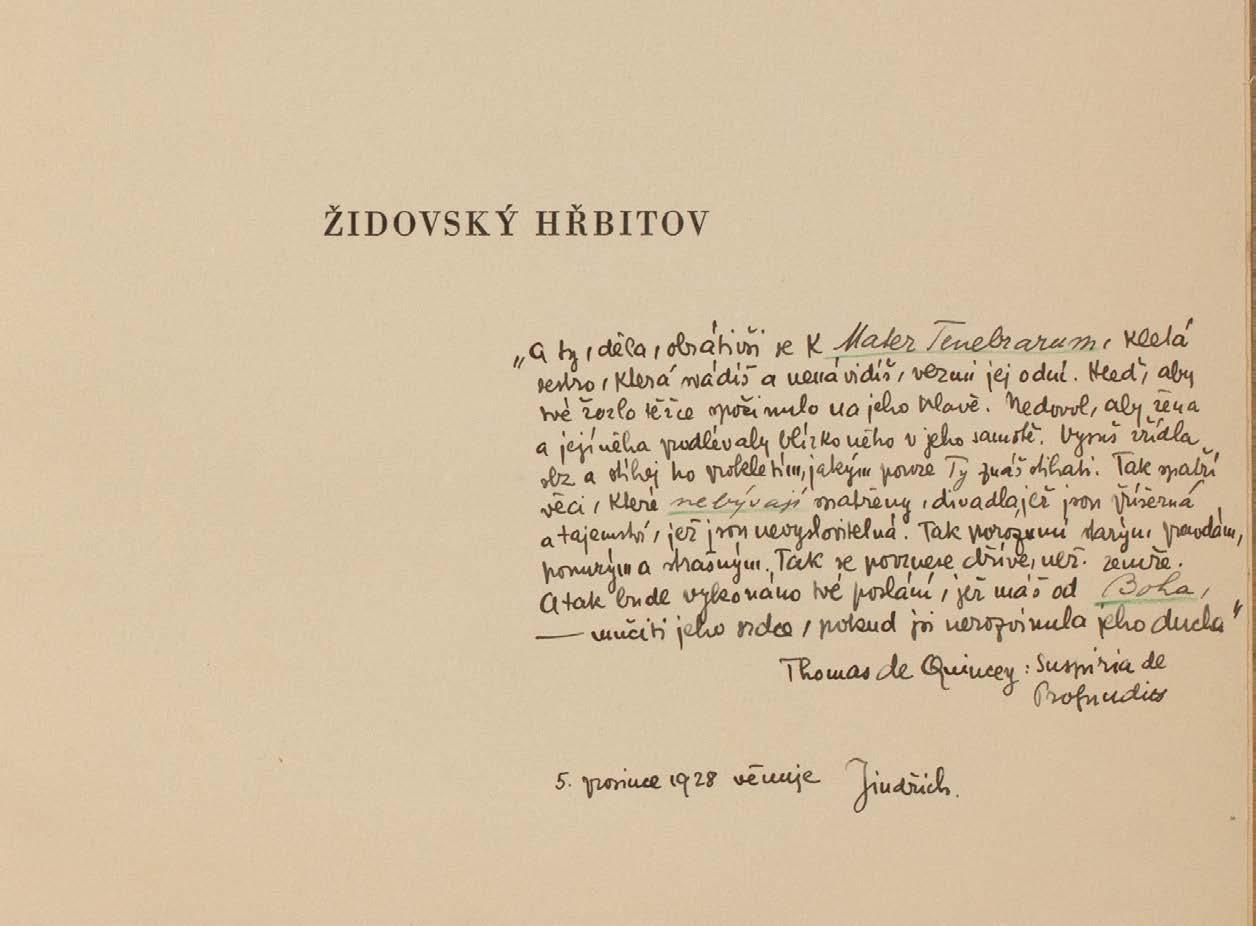 ŽIDOVSKÝ HŘBITOV
„A ty, děla, obrátivši se k Mater Tenebrarum, kletá
sestro, která svádíš a nenávidíš, vezmi jej odní. Hleď, aby
tvé žezlo těžce spočinulo na jeho hlavě. Nedovol, aby žena
a její něha prodlévaly blízko něho v jeho samotě. Vysuš zřídla
slz a stíhej ho prokletím, jakým pouze Ty znáš stíhati. Tak spatří
věci, které nebývají spatřeny, divadla, jež jsou příšerná
a tajemství, jež jsou nevyslovitelná. Tak porozumí starým pravdám,
ponurým a strašným. Tak se povznese dříve, než zemře.
A tak bude vykonáno tvé poslání, jež máš od Boha,
— mučiti jeho srdce, pokud jsi nerozvinula jeho ducha"
Thomas de Quincey: Suspiria de
Profundis
5. prosince 1928 věnuje Jindřich.